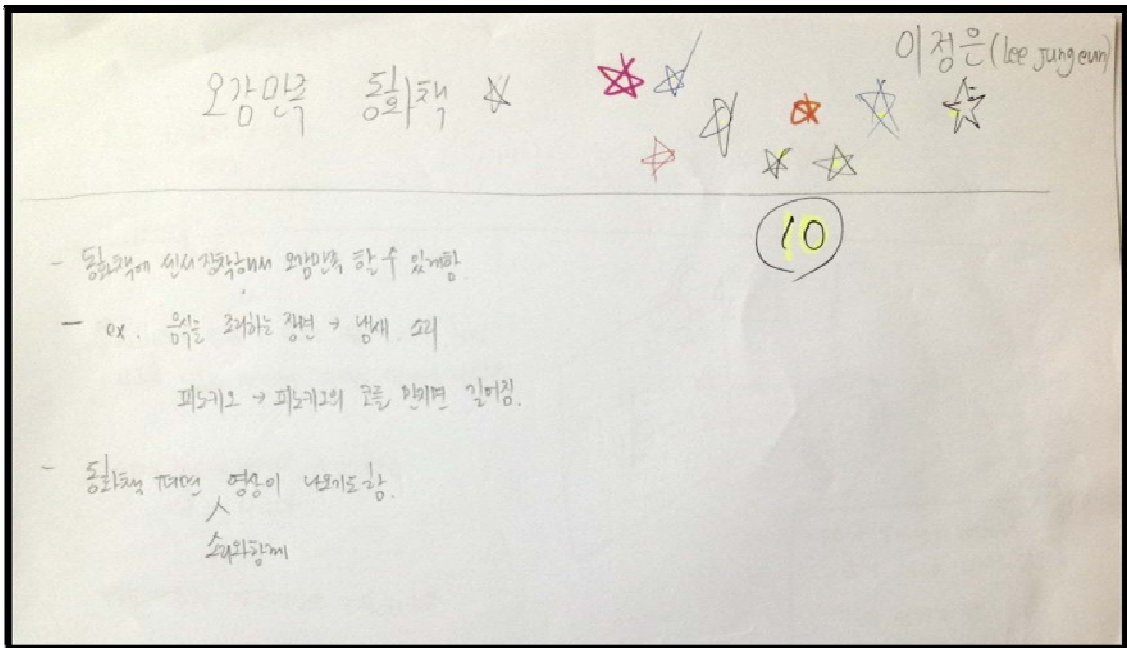 이정은 (lee jungeun)
오감만족 동화책
10
- 동화책에 센서 장착해서 오감만족 할 수 있게함.
- ex. 음식을 조리하는 장면 → 냄새. 소리
피노키오 → 피노키오의 코를 만지면 길어짐.
- 동화책 펴면 영상이 나오기도 함.
소리와 함께